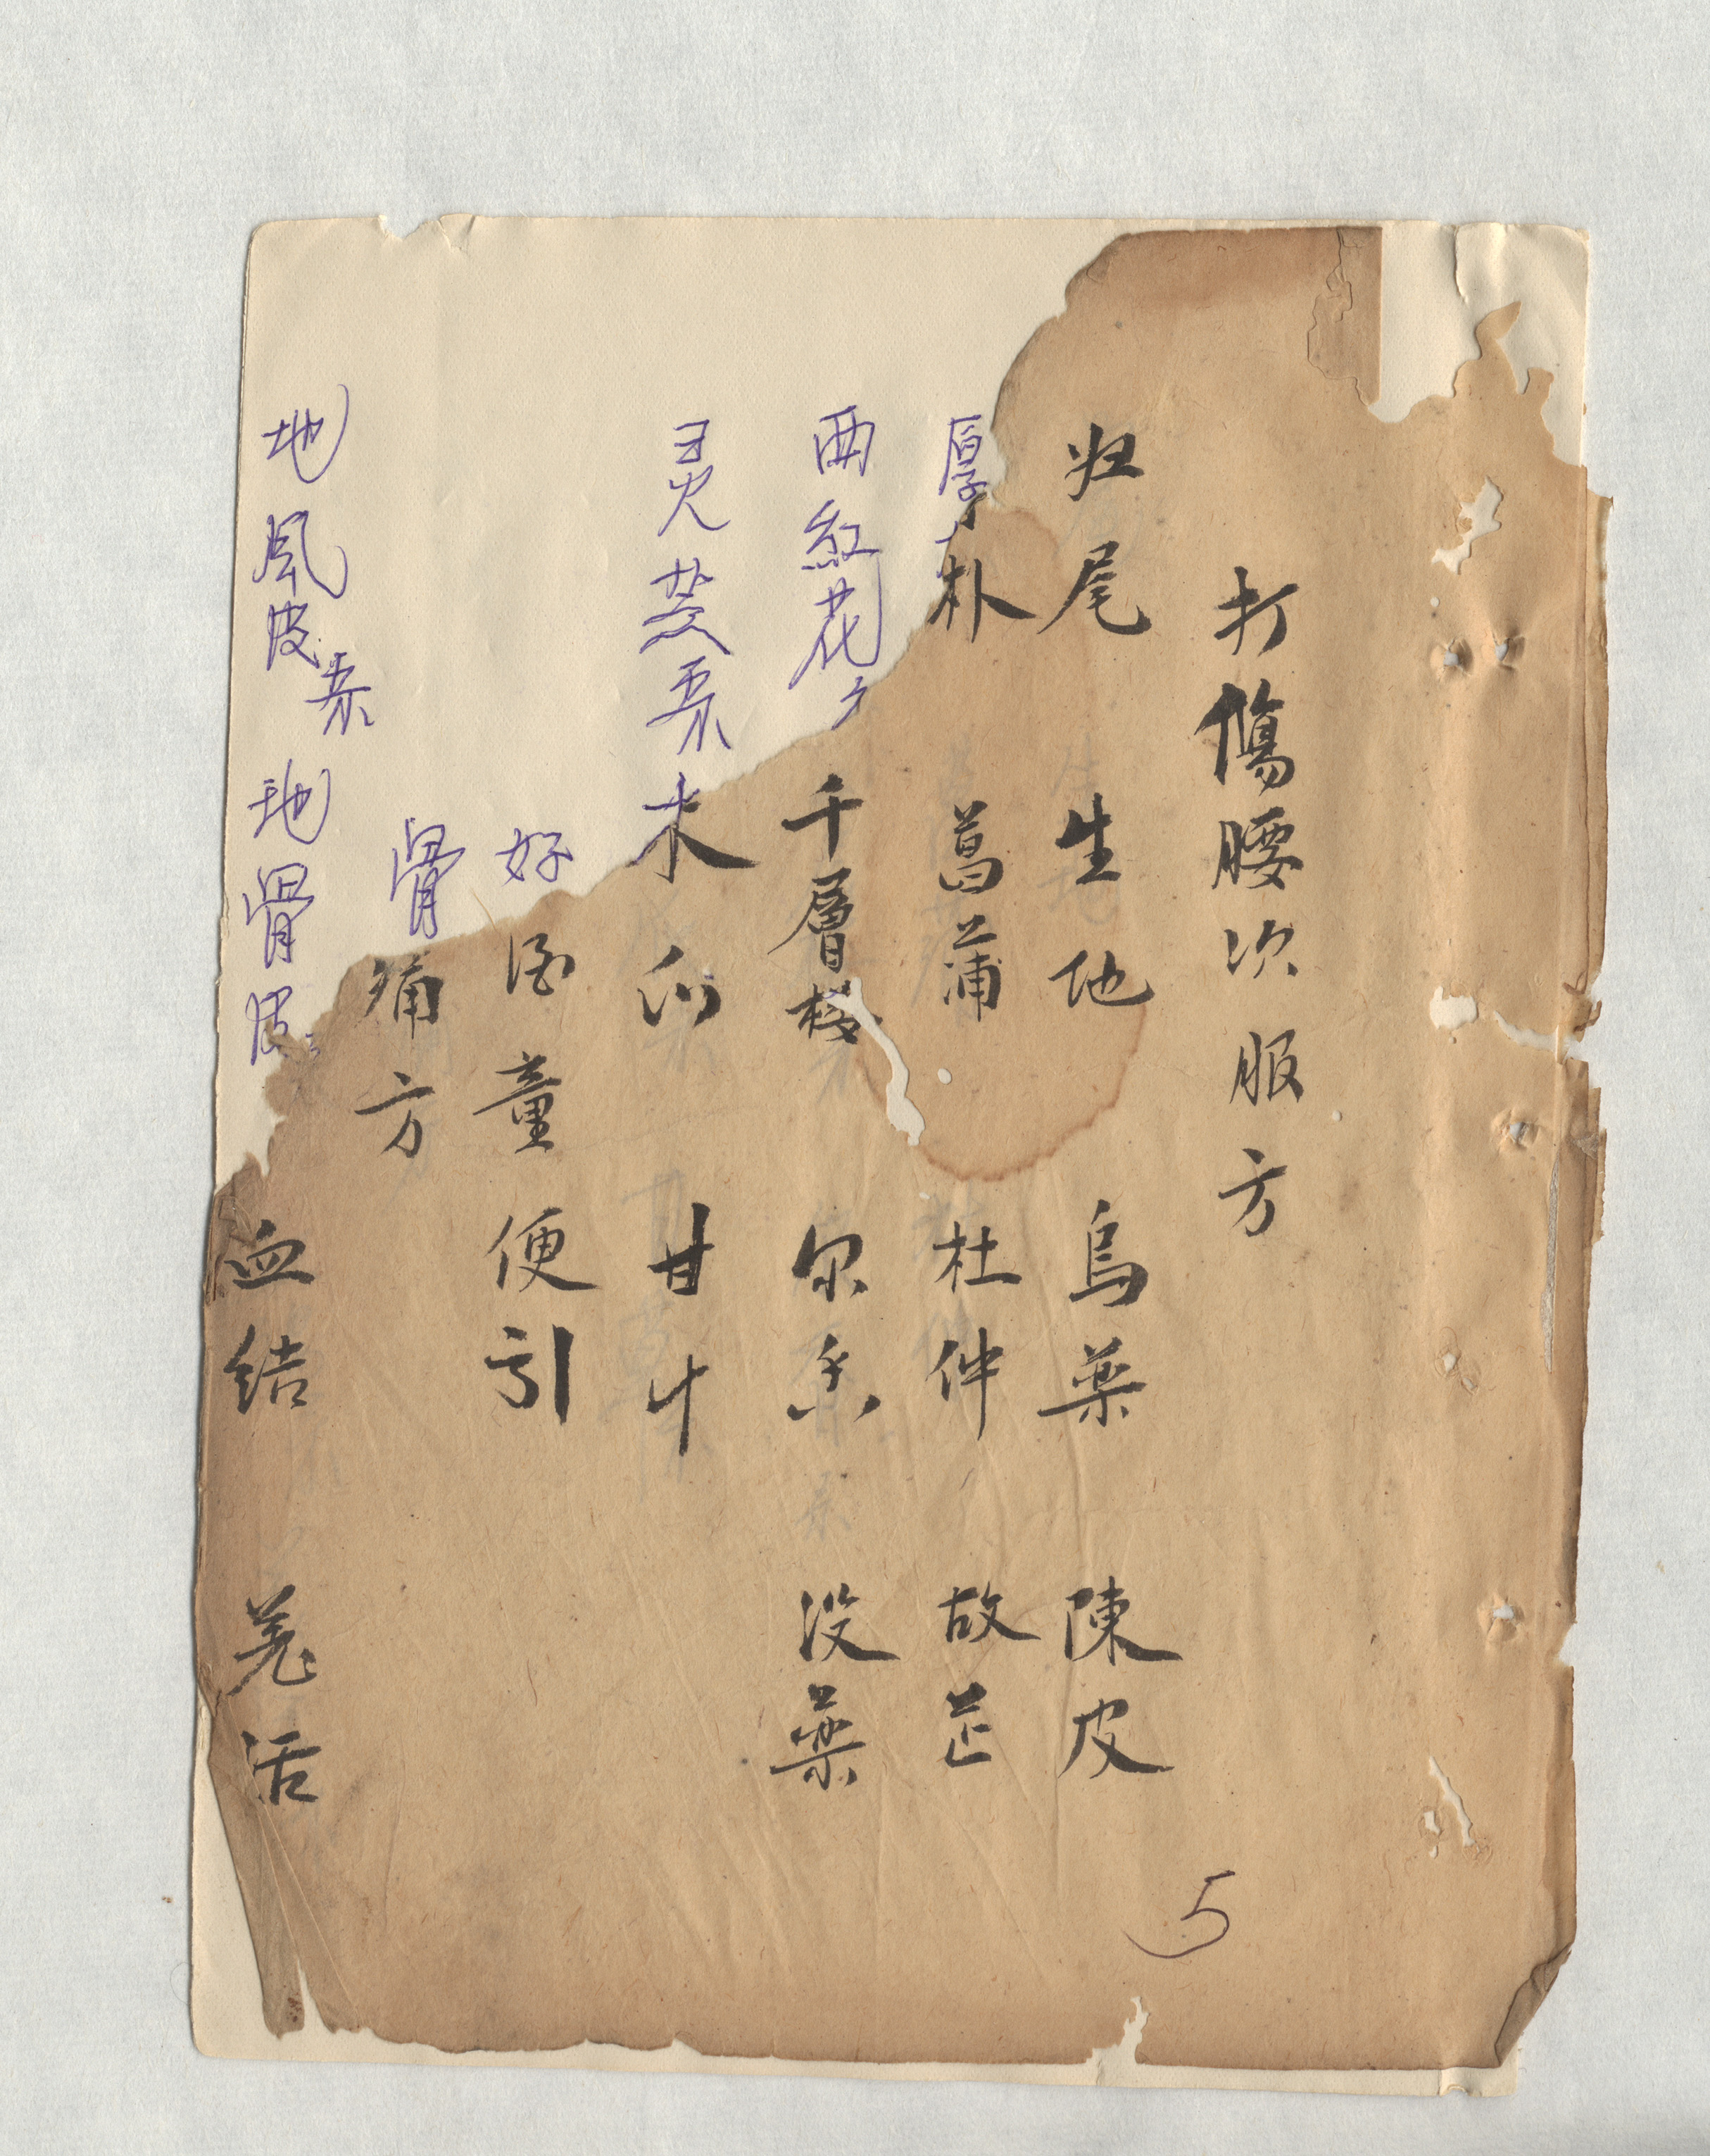 打傷腰次服方
归尾 生地 烏药 陳皮
厚朴 菖蒲 杜仲 故芷
西紅花 千層 尔香 没藥
灵芝 木瓜 甘艸
好酒童便引
骨痛方
地風皮 地骨皮 血结 羌活
5